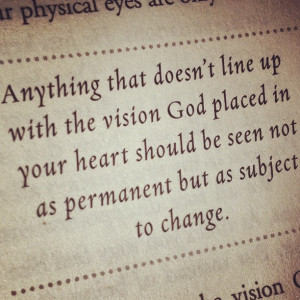 ur physical eyes are only
Anything that doesn't line up
with the vision God placed in
your heart should be seen not
as permanent but as subject
to change.
vision